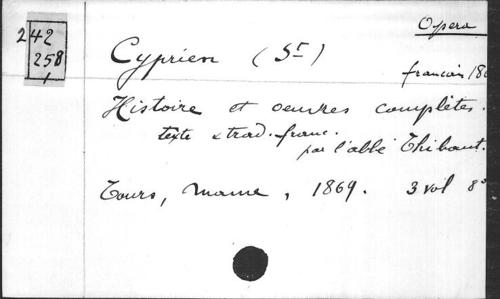 Opera
242
258
1
Cyprien (St)
francais 18
Histoire et oeuvres complètes.
texte & trad. franc.
par l'abbé Thibaut.
Tours, Mame, 1869. 3 vol 8°